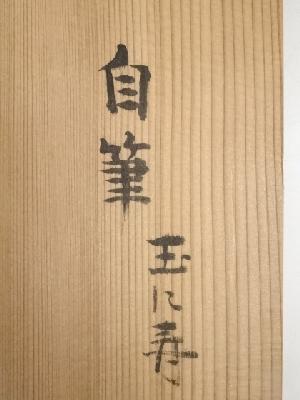 自筆
玉に寿